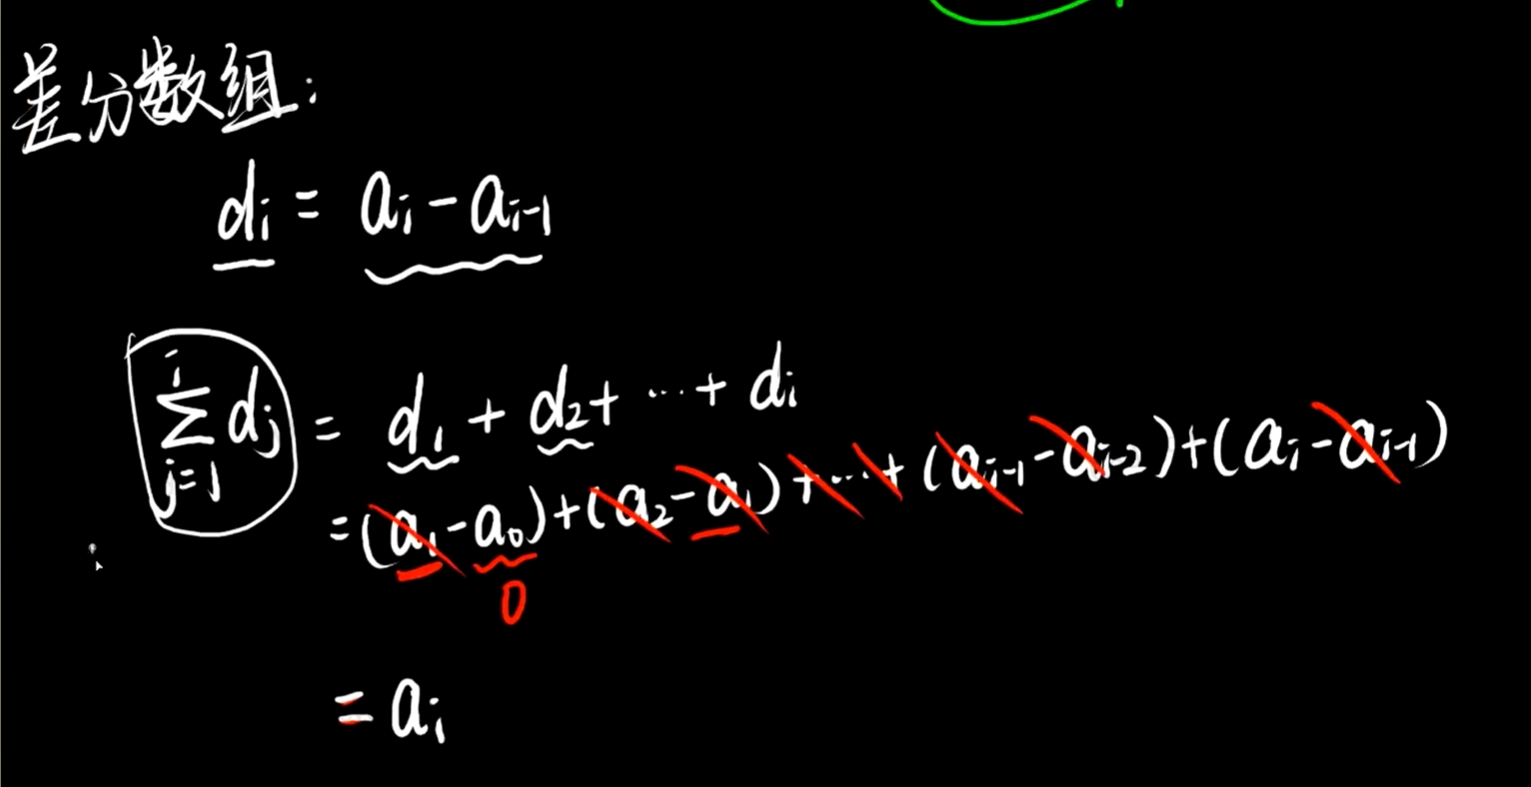 差分数组:
dᵢ = aᵢ - aᵢ₋₁
∑ⱼ₌₁ⁱ dⱼ = d₁ + d₂ + ⋯ + dᵢ
= (a₁ - a₀) + (a₂ - a₁) + ⋯ + (aᵢ₋₁ - aᵢ₋₂) + (aᵢ - aᵢ₋₁)
0
= aᵢ